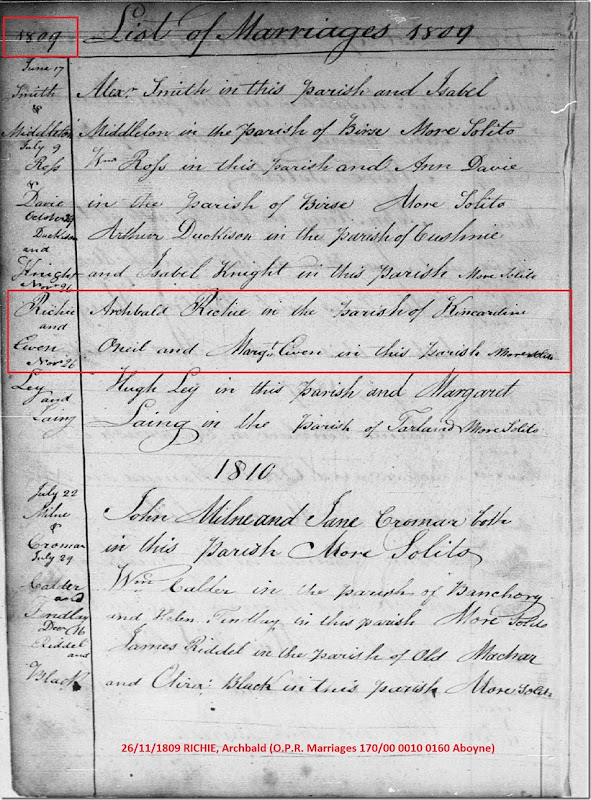 1809 List of Marriages 1809
June 17
Smith Alexr Smith in this Parish and Isabel
&
Middleton Middleton in the Parish of Birse More Solito
July 9
Ross Wm Ross in this Parish and Ann Davie
&
Davie in the Parish of Birse More Solito
October
Duckison Arthur Duckison in the Parish of Cushnie
and
Knight and Isabel Knight in this Parish More Solito
Novr 26
Richie Archbald Richie in the Parish of Kincardine
and
Ewen Oneil and Margt Ewen in this parish More Solito
Novr 26
Ley Hugh Ley in this parish and Margaret
and
Laing Laing in the Parish of Tarland More Solito
1810
July 22
Milne John Milne and Jane Cromar both
&
Cromar in this Parish More Solito
July 29
Calder Wm Calder in the parish of Banchory
and
Findlay and Helen Findlay in this parish More Solito
Decr 16
Riddel James Riddel in the Parish of Old Machar
and
Black and Black in this parish More Solito
26/11/1809 RICHIE, Archbald (O.P.R. Marriages 170/00 0010 0160 Aboyne)